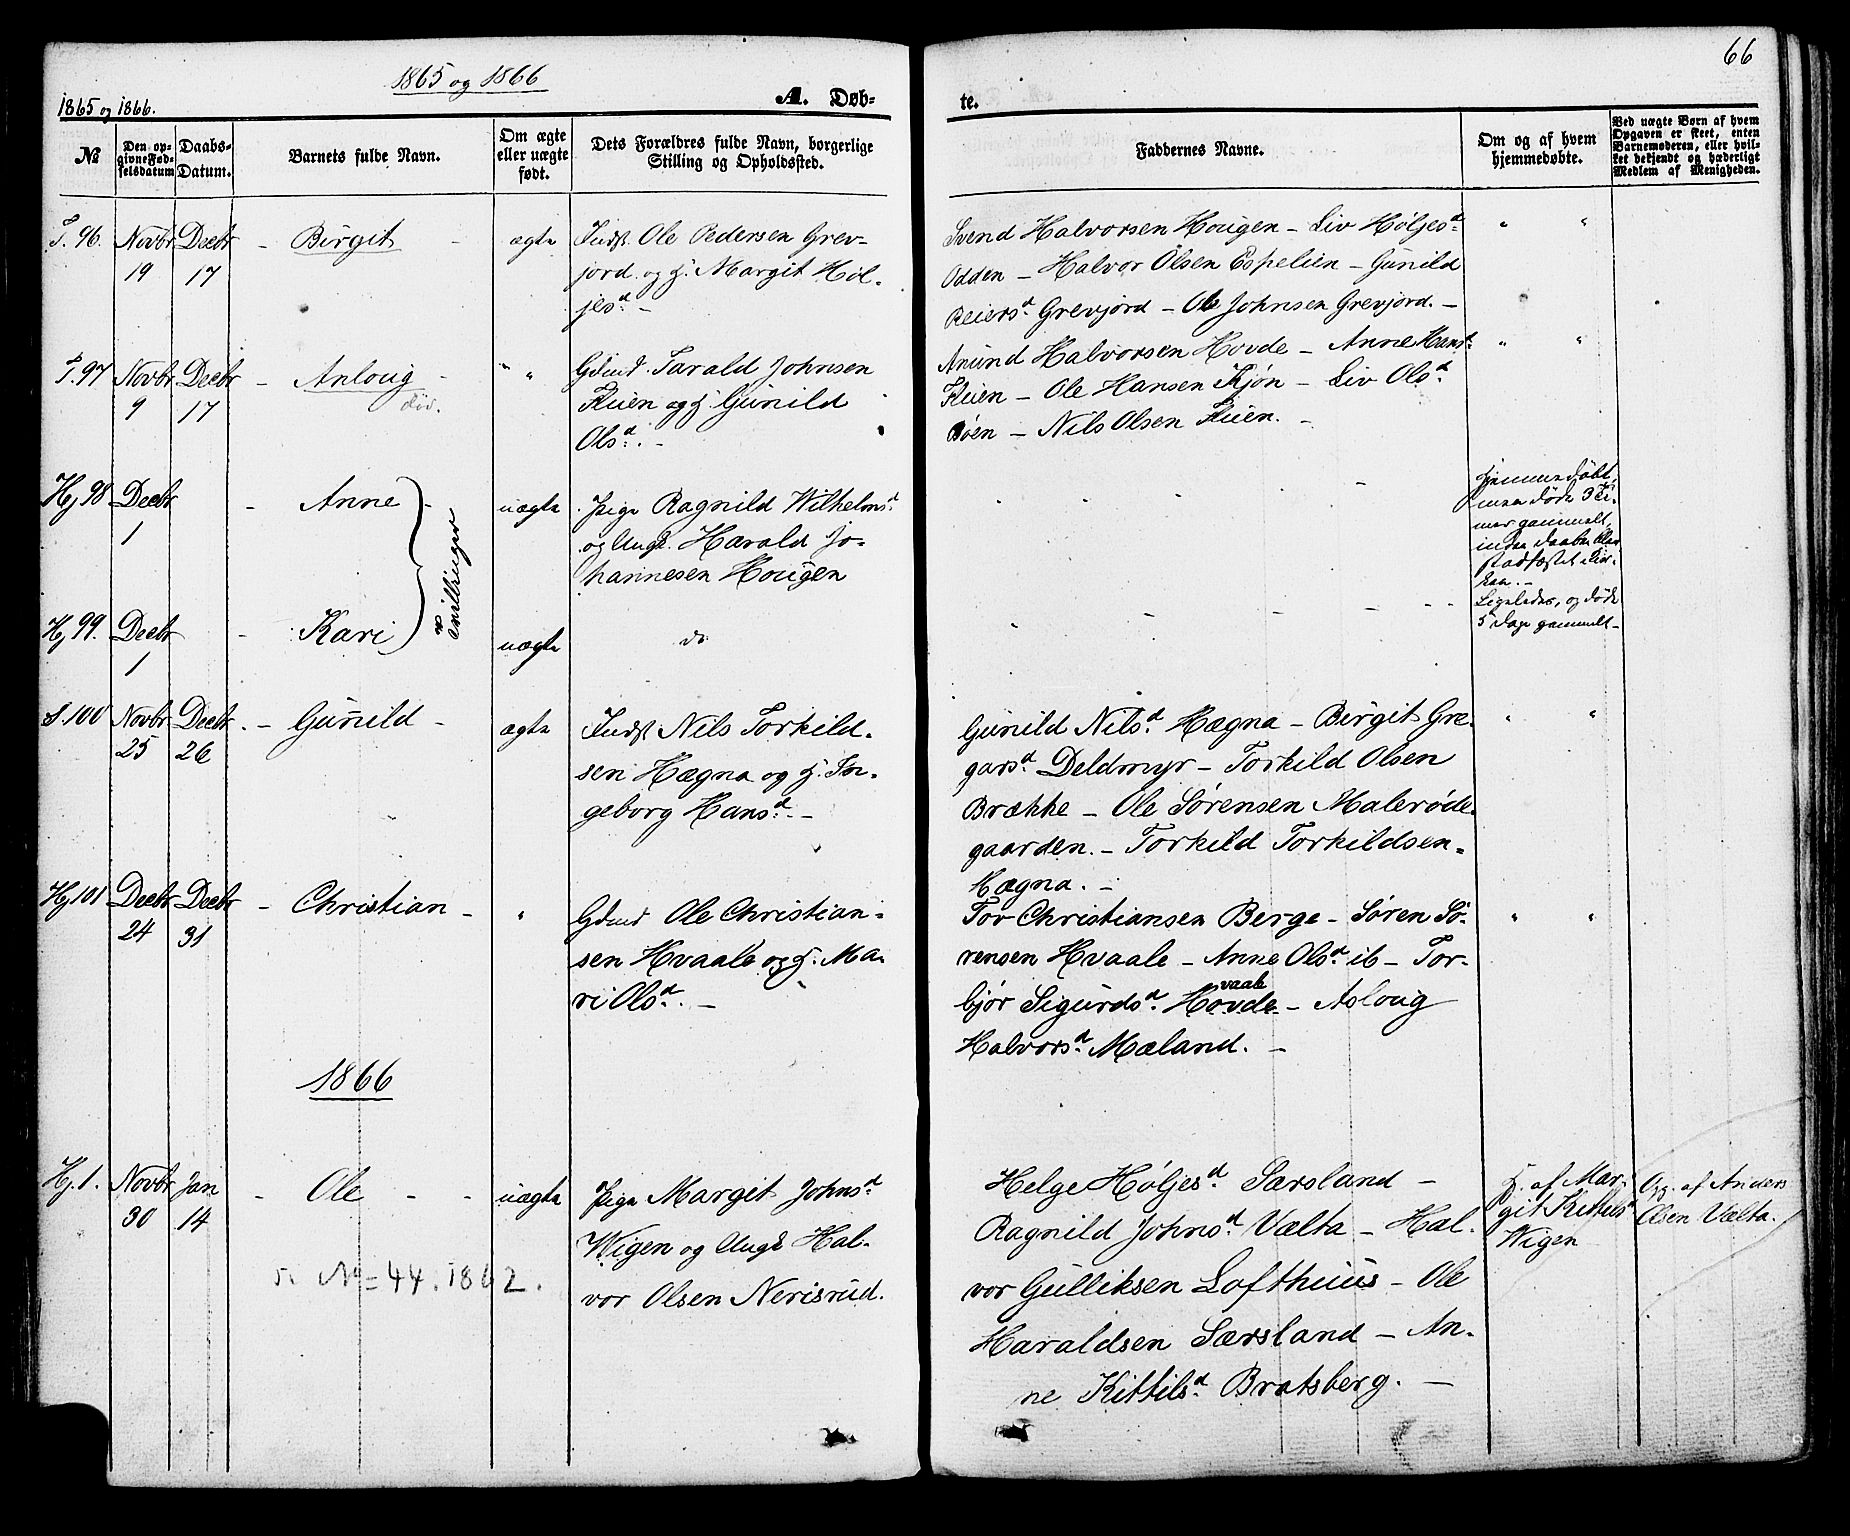 66
1865 og 1866
1865 og 1866.
A. Døb-
te.
№
Den op-
givne Fød-
selsdatum
Daabs-
Datum.
Barnets fulde Navn.
Om ægte
eller uægte
født.
Dets Forældres fulde Navn, borgerlige
Stilling og Opholdssted.
Faddernes Navne.
Om og af hvem
hjemmedøbte.
Ved uægte Børn af hvem
Opgaven er skeet, enten
Barnemoderen, eller hvil-
ket bekjendt og hæderligt
Medlem af Menigheden.
T. 96. Novbr 19 Decbr 17 - Birgit - ægte
Indst. Ole Pedersen Grev-
jord og H. Margit Høl-
jesd. -
Svend Halvorsen Hougen - Liv Høljesd.
Odden - Halvor Olsen Espelien - Gunild
Reiersd. Grevjord - Ole Johnsen Grevjord. -
" "
T. 97 Novbr 9 Decbr 17 - Anloug - " "
Gdmd. Tarald Johnsen
Kuen og H. Gunild
Olsd. -
Anund Halvorsen Hovde - Anne Hansd.
Kuen - Ole Hansen Kjøn - Liv Olsd.
Bøen - Nils Olsen Kuen. -
" "
Hj 98 Decbr 1 - Anne - uægte
Pige Ragnild Wilhelmsd.
og Ungk. Harald Jo-
hannesen Hougen
hjemmedøbt,
men døde 3 Ti-
mer gammelt,
inden Daaben blev
stadfæstet i Kir-
ken. -
Tvillinger
Hj 99. Decbr 1 - Kari uægte
do
Ligeledes, og døde
5 Dage gammelt -
S. 100 Novbr 25 Decbr 26 - Gunild - ægte
Indst Nils Torkild-
sen Hægna og H. In-
geborg Hansd. -
Gunild Nilsd. Hægna - Birgit Gre-
garsd. Deldmyr - Torkild Olsen
Brække - Ole Sørensen Malerøde-
gaarden. - Torkild Torkildsen
Hægna. -
" "
Hj 101 Decbr 24 Decbr 31 - Christian - "
Gdmd Ole Christian-
sen Hvaale og H. Ma-
ri Olsd. -
Tor Christiansen Berge - Søren Sø-
rensen Hvaale - Anne Olsd. ib - Tor-
bjør Sigurdsd. Hovde - Asloug
vaale
Halvorsd. Mæland. -
" "
1866
Hj. 1. Novbr 30 Jan 14 - Ole - - uægte
Pige Margit Johnsd.
Wigen og Ungk Hal-
vor Olsen Nerisrud.
№ = 44. 1862.
Helge Høljesd. Særsland -
Ragnild Johnsd. Vælta - Hal-
vor Gulliksen Lofthuus - Ole
Haraldsen Særsland - An-
ne Kittilsd. Bratsberg. -
H. af Mar-
git Kittilsd.
Wigen
Opg. af Anders
Olsen Vælta.